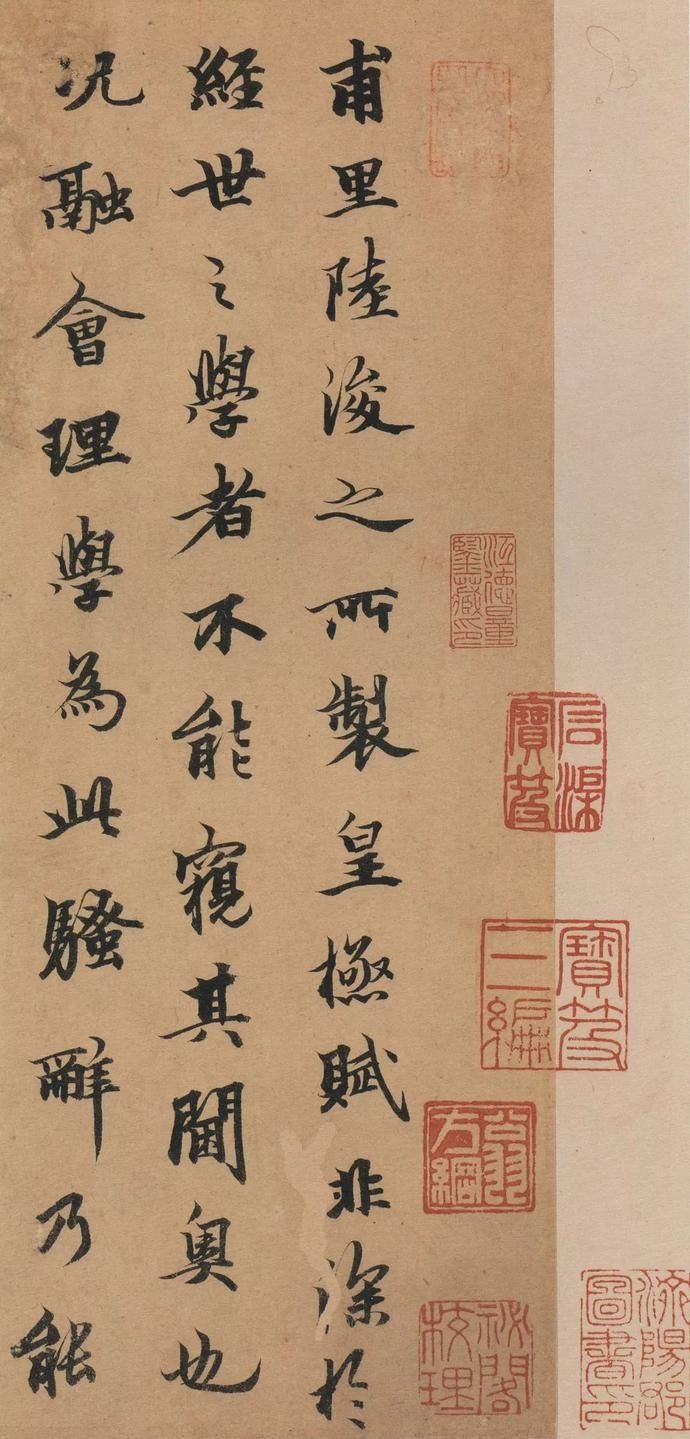 甫里陸浚之所製皇極賦非深於
經世之學者不能窺其閫奧也
况融會理學為此騷辭乃能
石渠寶笈
寶笈三編
翁方綱
秘閣校理
漁陽郡圖書印